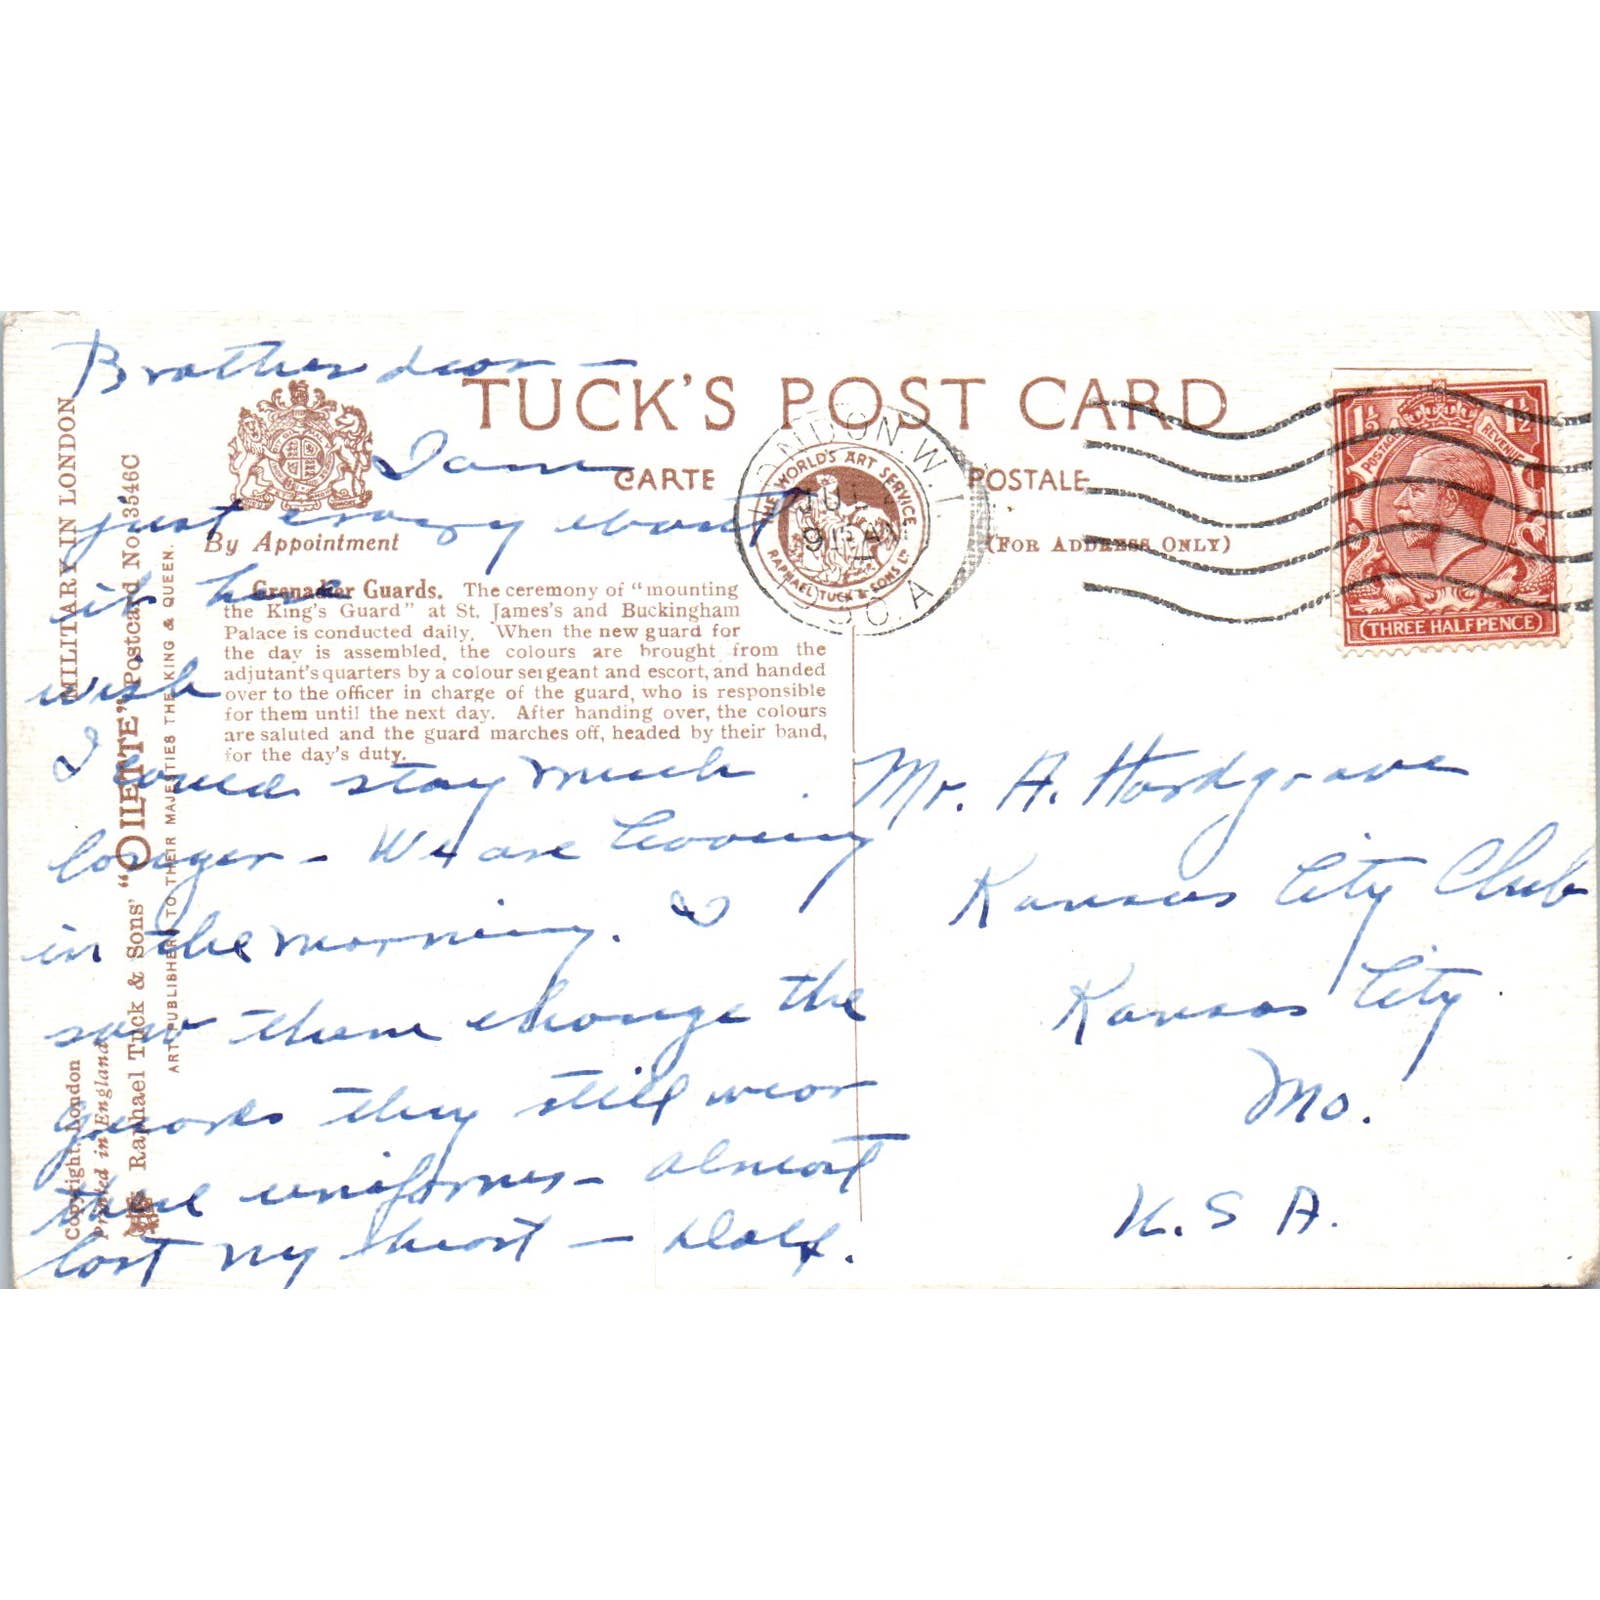 Brother dear –
I am
just crazy about
it here
wish
I could stay much
longer – We are leaving
in the morning. I
saw them change the
guards they still wear
these uniforms – almost
lost my heart –
TUCK'S POST CARD
CARTE POSTALE
By Appointment
(FOR ADDRESS ONLY)
Grenadier Guards. The ceremony of "mounting
the King's Guard" at St. James's and Buckingham
Palace is conducted daily. When the new guard for
the day is assembled, the colours are brought from the
adjutant's quarters by a colour sergeant and escort, and handed
over to the officer in charge of the guard, who is responsible
for them until the next day. After handing over, the colours
are saluted and the guard marches off, headed by their band,
for the day's duty.
MILITARY IN LONDON
Raphael Tuck & Sons' "OILETTE" Postcard No. 3546C
ART PUBLISHERS TO THEIR MAJESTIES THE KING & QUEEN.
Copyright. London
Printed in England
LONDON. W.1
THE WORLD'S ART SERVICE
RAPHAEL TUCK & SONS LTD
1½ 1½
POSTAGE REVENUE
THREE HALFPENCE
Mr. A. Hardgrave
Kansas City Club
Kansas City
Mo.
U. S A.